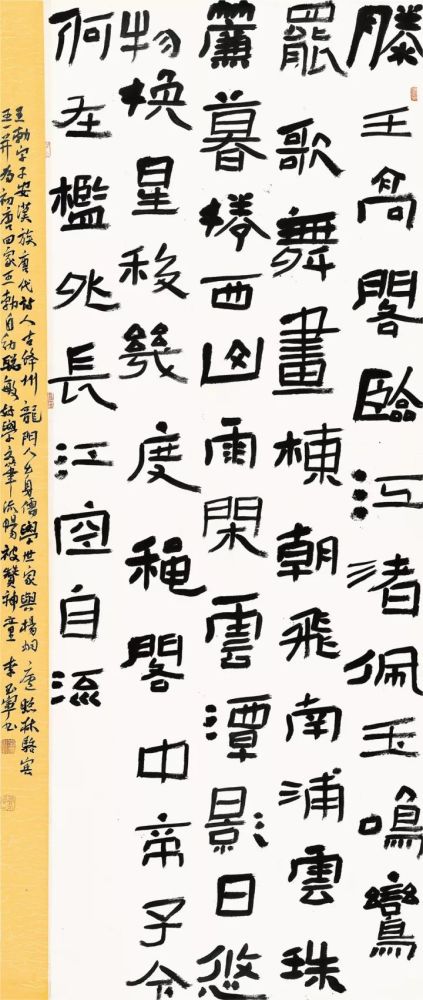 滕王高閣臨江渚佩玉鳴鸞
罷歌舞畫棟朝飛南浦雲珠
簾暮捲西山雨閑雲潭影日悠
物換星移幾度穐閣中帝子今
何在檻外長江空自流
王勃字子安漢族唐代詩人古絳州龍門人出身儒學世家與楊炯盧照林駱賓
王一并為初唐四家王勃自幼聰敏好學筆流暢被贊神童 李